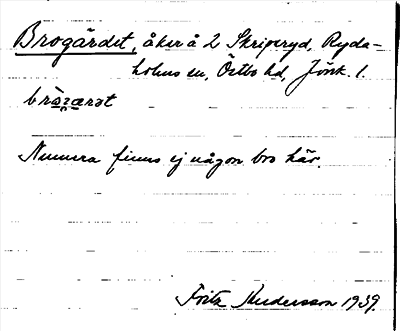 Brogärdet, åker å 2 Skriperyd, Ryda-
holms sn, Östbo hd, Jönk. l.
Numera finns ej någon bro här.
Fritz Andersson 1939.